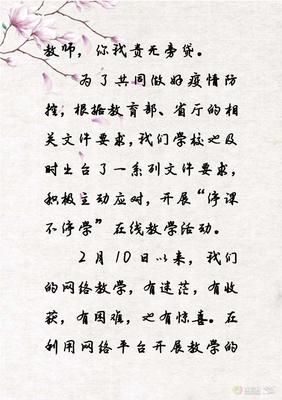 教师，你我责无旁贷。
为了共同做好疫情防
控，根据教育部、省厅的相
关文件要求，我们学校也及
时出台了一系列文件要求，
积极主动应对，开展“停课
不停学”在线教学活动。
2月10日以来，我们
的网络教学，有迷茫，有收
获，有困难，也有惊喜。在
利用网络平台开展教学的